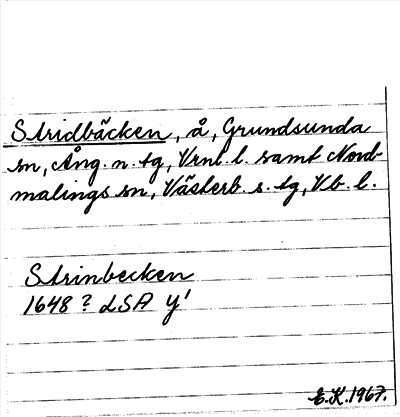 Stridbäcken, å, Grundsunda
sn, Ång. n. tg, Vrnl. l. samt Nord-
malings sn, Västerb. s. tg, Vb. l.
Strinbecken
1648? LSA y'
E.K. 1967.